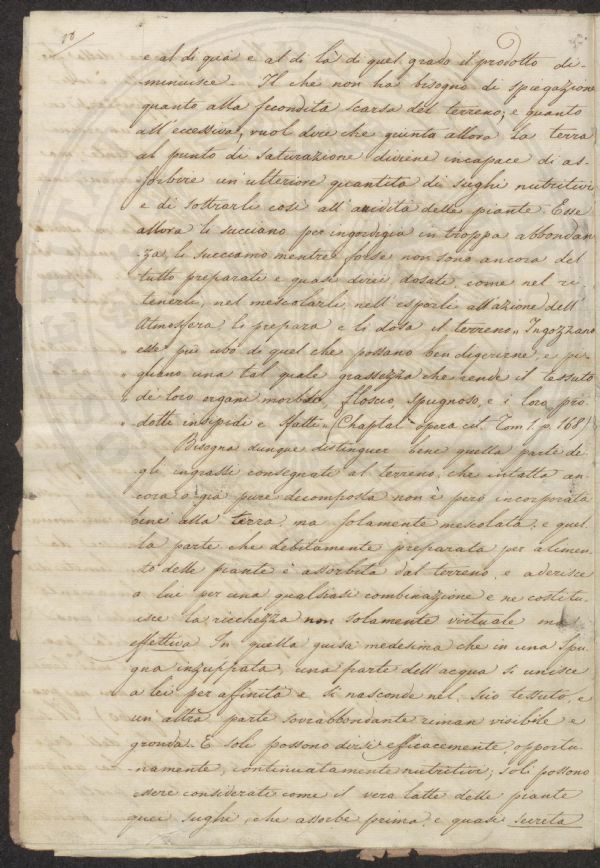 18
e al di quà e al di là di quel grado il prodotto di-
minuisce. Il che non ha bisogno di spiegazione
quanto alla fecondità scarsa del terreno; e quanto
all'eccessiva, vuol dire che giunta allora la terra
al punto di saturazione diviene incapace di as-
sorbire un'ulteriore quantità di sughi nutritivi
e di sottrarli così all'avidità delle piante. Esse
allora li succiano per ingordigia in troppa abbondan
-za, li succiano mentre forse non sono ancora del
tutto preparati e quasi direi dosati, come nel ri-
tenerli, nel mescolarli, nell'esporli all'azione dell'
Atmosfera li prepara e li dosa il terreno „ Ingozzano
„ esse più cibo di quel che possano ben digerirne e pi-
„ gliano una tal quale grassezza che rende il tessuto
„ de' loro organi morbido, floscio, spugnoso, e i loro pro
„ dotti insipidi e sfatti „ (Chaptal opera cit. Tom 1. p. 168)
Bisogna dunque distinguer bene quella parte de-
gli ingrassi consegnati al terreno, che intatta an-
cora o già pure decomposta non è però incorporata
bene alla terra, ma solamente mescolata, e quel-
la parte che debitamente preparata per alimen-
to delle piante è assorbita dal terreno, e aderisce
a lui per una qualsiasi combinazione e ne costitu-
isce la ricchezza non solamente virtuale ma
effettiva. In quella guisa medesima che in una spu-
gna inzuppata, una parte dell'acqua si unisce
a lei per affinità e si nasconde nel suo tessuto, e
un'altra parte sovrabbondante riman visibile e
gronda. E soli possono dirsi efficacemente, opportu-
namente, continuatamente nutritivi; soli possono
essere considerati come il vero latte delle piante
quei sughi, che assorbe prima, e quasi secreta